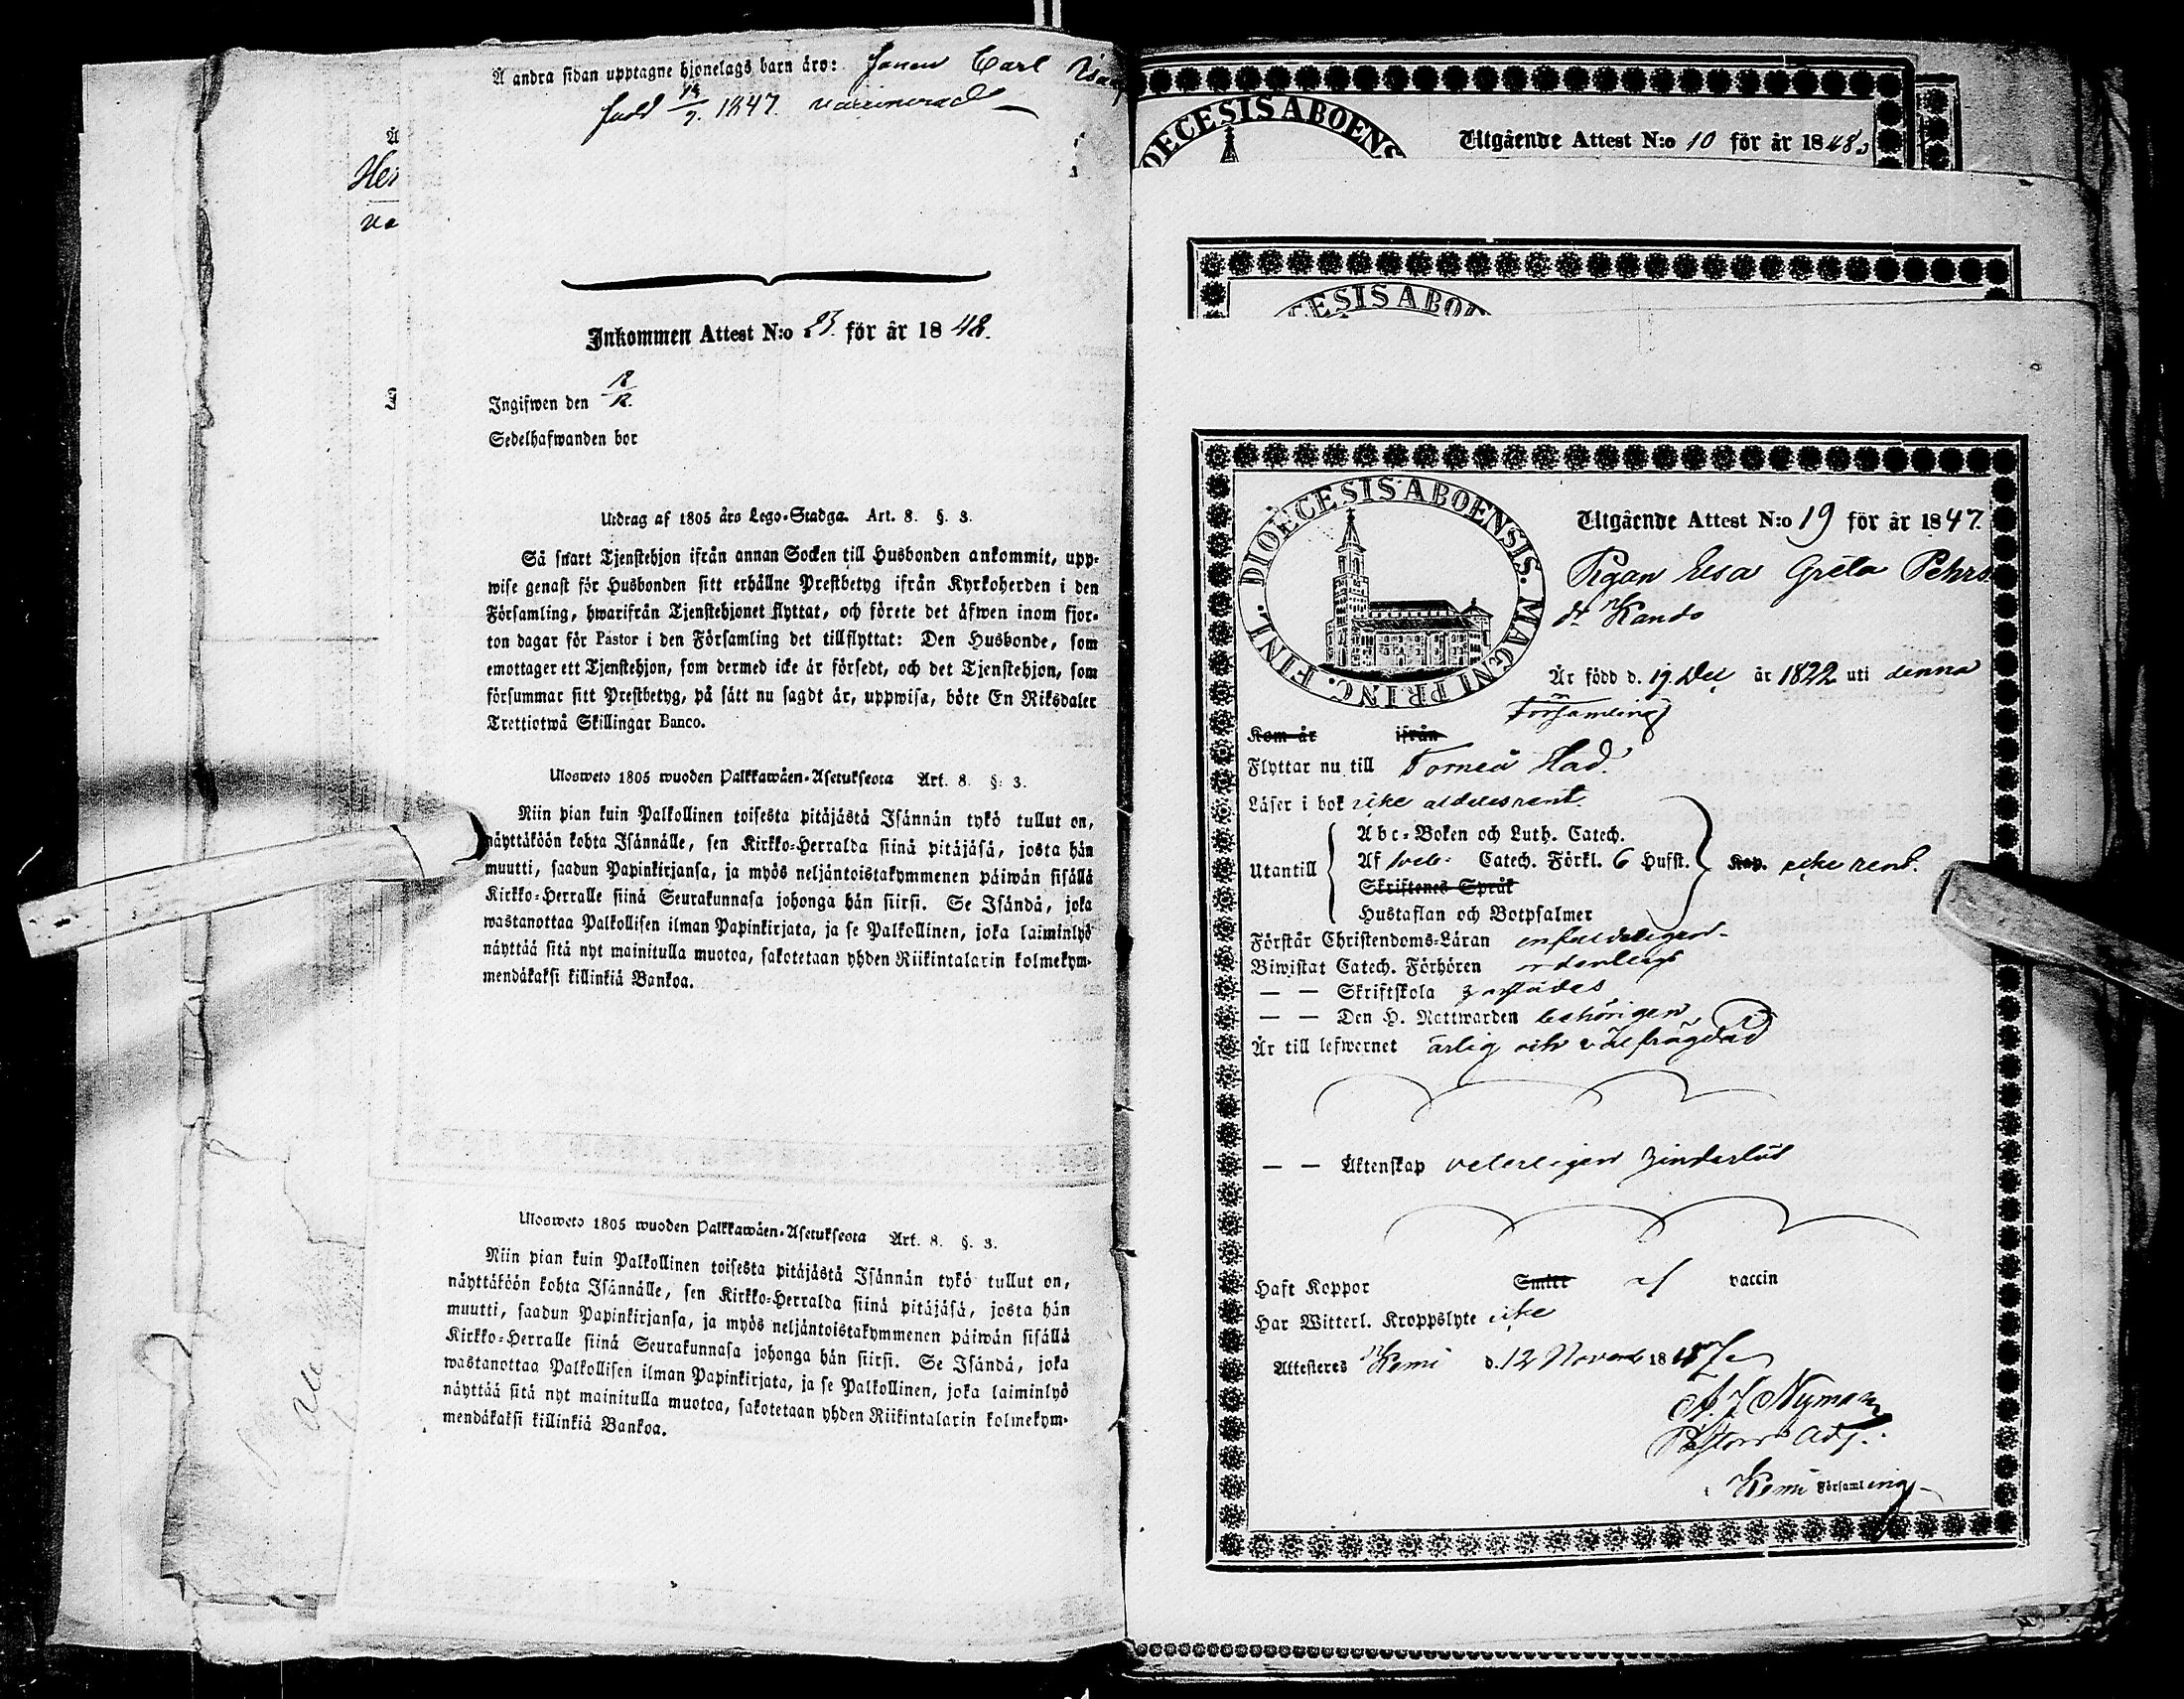 Å andra sidan upptagne hjonelags barn äro: Sonen Carl Isac
född 14/7. 1847. vaccinerad
Å
Her
va
Inkommen Attest N:o 23. för år 1848.
Ingifwen den 18/12.
Sedelhafwanden bor
Utdrag af 1805 års Lego-Stadga. Art. 8. §. 3.
Så snart Tjenstehjon ifrån annan Socken till Husbonden ankommit, upp-
wise genast för Husbonden sitt erhållne Prestbetyg ifrån Kyrkoherden i den
Församling, hwarifrån Tjenstehjonet flyttat, och förete det äfwen inom fjor-
ton dagar för Pastor i den Församling det tillflyttat: Den Husbonde, som
emottager ett Tjenstehjon, som dermed icke är försedt, och det Tjenstehjon, som
försummar sitt Prestbetyg, på sätt nu sagdt är, uppwisa, böte En Riksdaler
Trettiotwå Skillingar Banco.
Ulosweto 1805 wuoden Palkkawäen-Asetuksesta Art. 8. §. 3.
Niin pian kuin Palkollinen toisesta pitäjästä Isännän tykö tullut on,
näyttäköön kohta Isännälle, sen Kirkko-Herralda siinä pitäjäsä, josta hän
muutti, saadun Papinkirjansa, ja myös neljäntoistakymmenen päiwän sisällä
Kirkko-Herralle siinä Seurakunnasa johonga hän siirsi. Se Isändä, joka
wastanottaa Palkollisen ilman Papinkirjata, ja se Palkollinen, joka laiminlyö
näyttää sitä nyt mainitulla muotoa, sakotetaan yhden Riikintalarin kolmekym-
mendäkaksi killinkiä Bankoa.
Ulosweto 1805 wuoden Palkkawäen-Asetuksesta Art. 8. §. 3.
Niin pian kuin Palkollinen toisesta pitäjästä Isännän tykö tullut on,
näyttäköön kohta Isännälle, sen Kirkko-Herralda siinä pitäjäsä, josta hän
muutti, saadun Papinkirjansa, ja myös neljäntoistakymmenen päiwän sisällä
Kirkko-Herralle siinä Seurakunnasa johonga hän siirsi. Se Isändä, joka
wastanottaa Palkollisen ilman Papinkirjata, ja se Palkollinen, joka laiminlyö
näyttää sitä nyt mainitulla muotoa, sakotetaan yhden Riikintalarin kolmekym-
mendäkaksi killinkiä Bankoa.
OECESIS ABOENS
Utgående Attest N:o 10 för år 1848.
CESIS ABOE
DIOECESIS ABOENSIS. MAGNI PRINC. FINL.
Utgående Attest N:o 19 för år 1847.
Pigan Elsa Greta Pehrs
dr Kando
Är född d. 19 Dec år 1822 uti denna
Församling
Kom år ifrån
Flyttar nu till Torneå stad.
Läser i bok icke aldeles rent.
Utantill
Abc-Boken och Luth. Catech.
Af Sveb: Catech. Förkl. 6 Hufst.
Skriftenes Språk
Hustaflan och Botpsalmer
Kap. icke rent.
Förstår Christendoms-Läran enfaldeligen
Biwistat Catech. Förhören ordentligt
— — Skriftskola
— — Den H. Nattwarden behörigen,
Är till lefwernet ärlig och välfrägdad
— — Äktenskap veterligen hinderlös
Haft Koppor Smitt af vaccin
Har Witterl. Kroppslyte icke
Attesteres Kemi d. 12 Novemb 1847
A. J. Nyman
Pastors Adj.
Kemi Församling